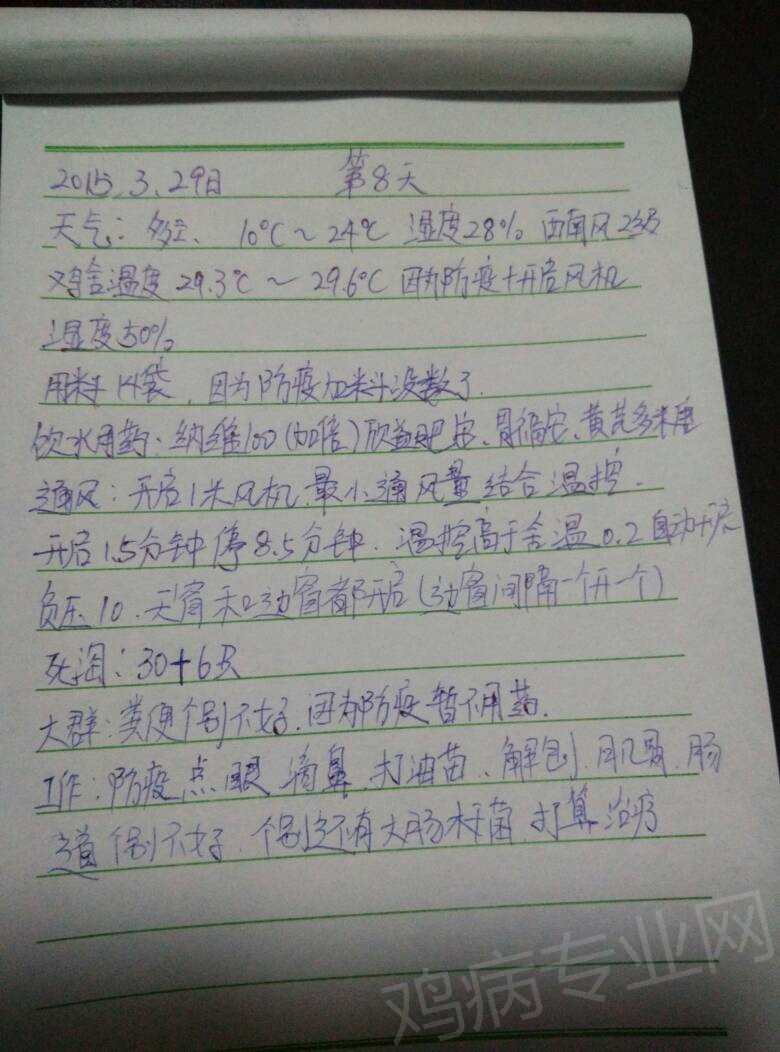 2015.3.29日 第8天
天气：多云、10℃～24℃ 湿度28% 西南风2级
鸡舍温度 29.3℃～29.6℃ 因为防疫+开启风机
湿度50%
用料14袋，因为防疫加料没数了.
饮水用药：纳维100(加倍)欣益肥宝、胃福安、黄芪多米唐
通风：开启1米风机.最小通风量结合温控.
开启1.5分钟停8.5分钟.温控高于舍温0.2自动开启
负压10.天窗和边窗都开启(边窗间隔一个开一个)
死淘：30+6只
大群：粪便个别不好.因为防疫暂不用药.
工作：防疫点眼滴鼻.打油苗、解刨.肌胃.肠
道个别不好.个别还有大肠杆菌.打算治疗
鸡病专业网